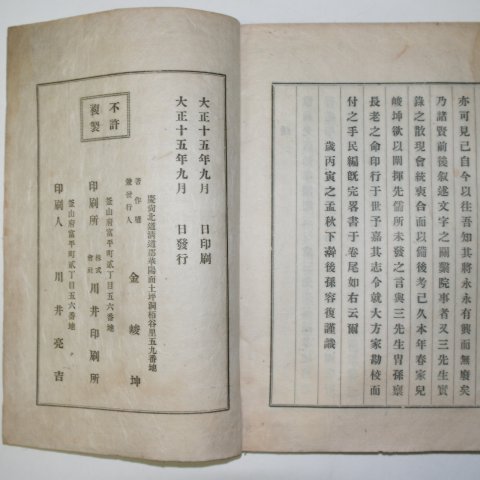 亦可見已自今以往吾知其將永永有興而無廢矣
乃諸賢前後叙述文字之關繫院事者及三先生實
錄之散現會統裒合而以備後考已久本年春家兒
峻坤欲以闡揮先儒所未發之言與三先生胄孫稟
長老之命印行于世予嘉其志令就大方家勘校而
付之手民編旣完畧書于卷尾如右云爾
歲丙寅之孟秋下澣後孫容復謹識
大正十五年九月　日印刷
大正十五年九月　日發行
慶尙北道淸道郡華陽面土坪洞栢谷里五九番地
著作兼發行人　金峻坤
釜山府富平町貳丁目五六番地
印刷所　株式會社　川井印刷所
釜山府富平町貳丁目五六番地
印刷人　川井亮吉
不許
複製